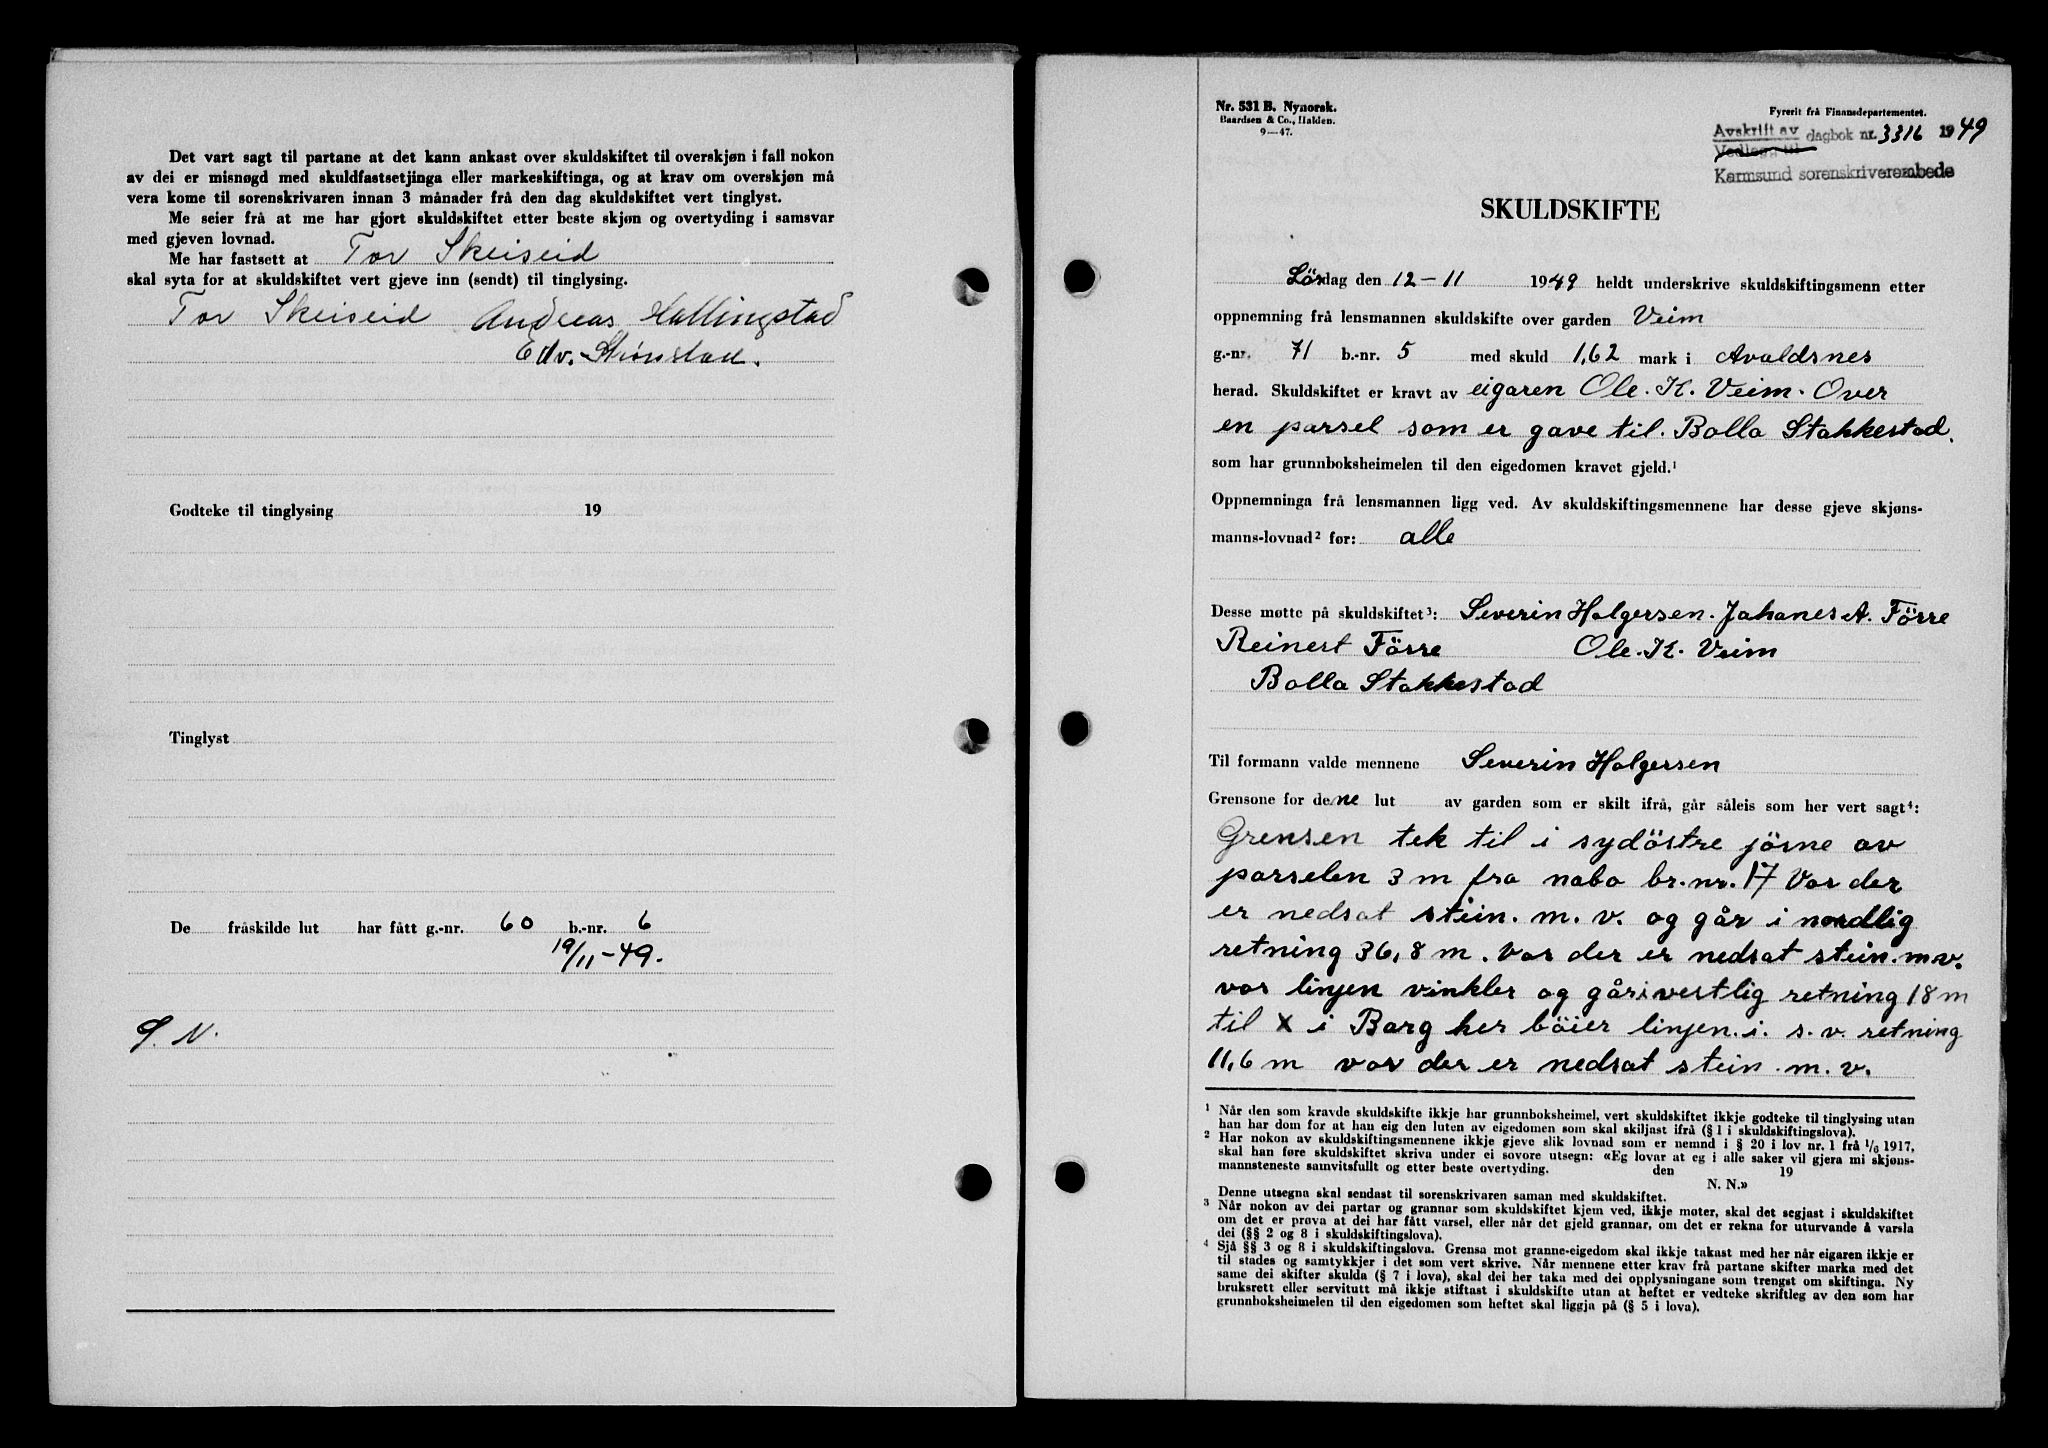 Det vart sagt til partane at det kann ankast over skuldskiftet til overskjøn i fall nokon
av dei er misnøgd med skuldfastsetjinga eller markeskiftinga, og at krav om overskjøn må
vera kome til sorenskrivaren innan 3 månader frå den dag skuldskiftet vert tinglyst.
Me seier frå at me har gjort skuldskiftet etter beste skjøn og overtyding i samsvar
med gjeven lovnad.
Me har fastsett at Tor Skeiseid
skal syta for at skuldskiftet vert gjeve inn (sendt) til tinglysing.
Tor Skeiseid Andreas Hallingstad
Edv. Stiønstad.
Godteke til tinglysing 19
Tinglyst
De fråskilde lut har fått g.-nr. 60 b.-nr. 6
19/11-49.
S. N.
Nr. 531 B. Nynorsk.
Baardsen & Co., Halden.
9—47.
Fyrerit frå Finansdepartementet.
Avskrift av
Vedlegg til dagbok nr. 3316 1949
Karmsund sorenskriverembede
SKULDSKIFTE
Lördag den 12-11 1949 heldt underskrive skuldskiftingsmenn etter
oppnemning frå lensmannen skuldskifte over garden Veim
g.-nr. 71 b.-nr. 5 med skuld 1,62 mark i Avaldsnes
herad. Skuldskiftet er kravt av eigaren Ole. K. Veim. Over
en parsel som er gave til. Bolla Stakkestad.
som har grunnboksheimelen til den eigedomen kravet gjeld.¹
Oppnemninga frå lensmannen ligg ved. Av skuldskiftingsmennene har desse gjeve skjøns-
manns-lovnad² før: alle
Desse møtte på skuldskiftet³: Severin Holgersen. Johanes A. Förre
Reinert Förre Ole. K. Veim
Bolla Stakkestad
Til formann valde mennene Severin Holgersen
Grensone for dene lut av garden som er skilt ifrå, går såleis som her vert sagt⁴:
Grensen tek til i sydöstre jörne av
parselen 3 m fra nabo br. nr. 17 Vor der
er nedsat stein. m. v. og går i nordlig
retning 36,8 m. vor der er nedsat stein. m v.
vor linjen vinkler og går i vestlig retning 18 m
til X i Barg her böier linjen. i. s. v. retning
11,6 m vor der er nedsat stein. m. v.
¹ Når den som kravde skuldskifte ikkje har grunnboksheimel, vert skuldskiftet ikkje godteke til tinglysing utan
han har dom for at han eig den luten av eigedomen som skal skiljast ifrå (§ 1 i skuldskiftingslova).
² Har nokon av skuldskiftingsmennene ikkje gjeve slik lovnad som er nemnd i § 20 i lov nr. 1 frå 1/6 1917,
skal han føre skuldskiftet skriva under ei sovore utsegn: «Eg lovar at eg i alle saker vil gjera mi skjøns-
mannsteneste samvitsfullt og etter beste overtyding. den 19
N. N.»
Denne utsegna skal sendast til sorenskrivaren saman med skuldskiftet.
³ Når nokon av dei partar og grannar som skuldskiftet kjem ved, ikkje møter, skal det segjast i skuldskiftet
om det er prøva at dei har fått varsel, eller når det gjeld grannar, om det er rekna for uturvande å varsla
dei (§§ 2 og 8 i skuldskiftingslova).
⁴ Sjå §§ 3 og 8 i skuldskiftingslova. Grensa mot granne-eigedom skal ikkje takast med her når eigaren ikkje er
til stades og samtykkjer i det som vert skrive. Når mennene etter krav frå partane skifter marka med det
same dei skifter skulda (§ 7 i lova), skal dei her taka med dei opplysningane som trengst om skiftinga. Ny
bruksrett eller servitutt må ikkje stiftast i skuldskifte utan at heftet er vedteke skriftleg av den som har
grunnboksheimelen til den eigedomen som heftet skal liggja på (§ 5 i lova).